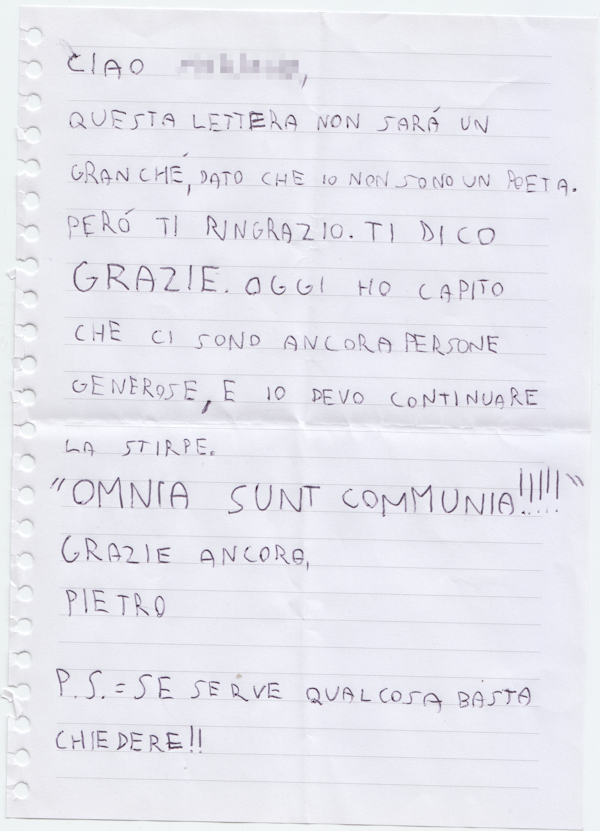 CIAO ,
QUESTA LETTERA NON SARÁ UN
GRAN CHÉ, DATO CHE IO NON SONO UN POETA.
PERÓ TI RINGRAZIO. TI DICO
GRAZIE. OGGI HO CAPITO
CHE CI SONO ANCORA PERSONE
GENEROSE, E IO DEVO CONTINUARE
LA STIRPE.
"OMNIA SUNT COMMUNIA!!!!!"
GRAZIE ANCORA,
PIETRO
P.S.=SE SERVE QUALCOSA BASTA
CHIEDERE!!